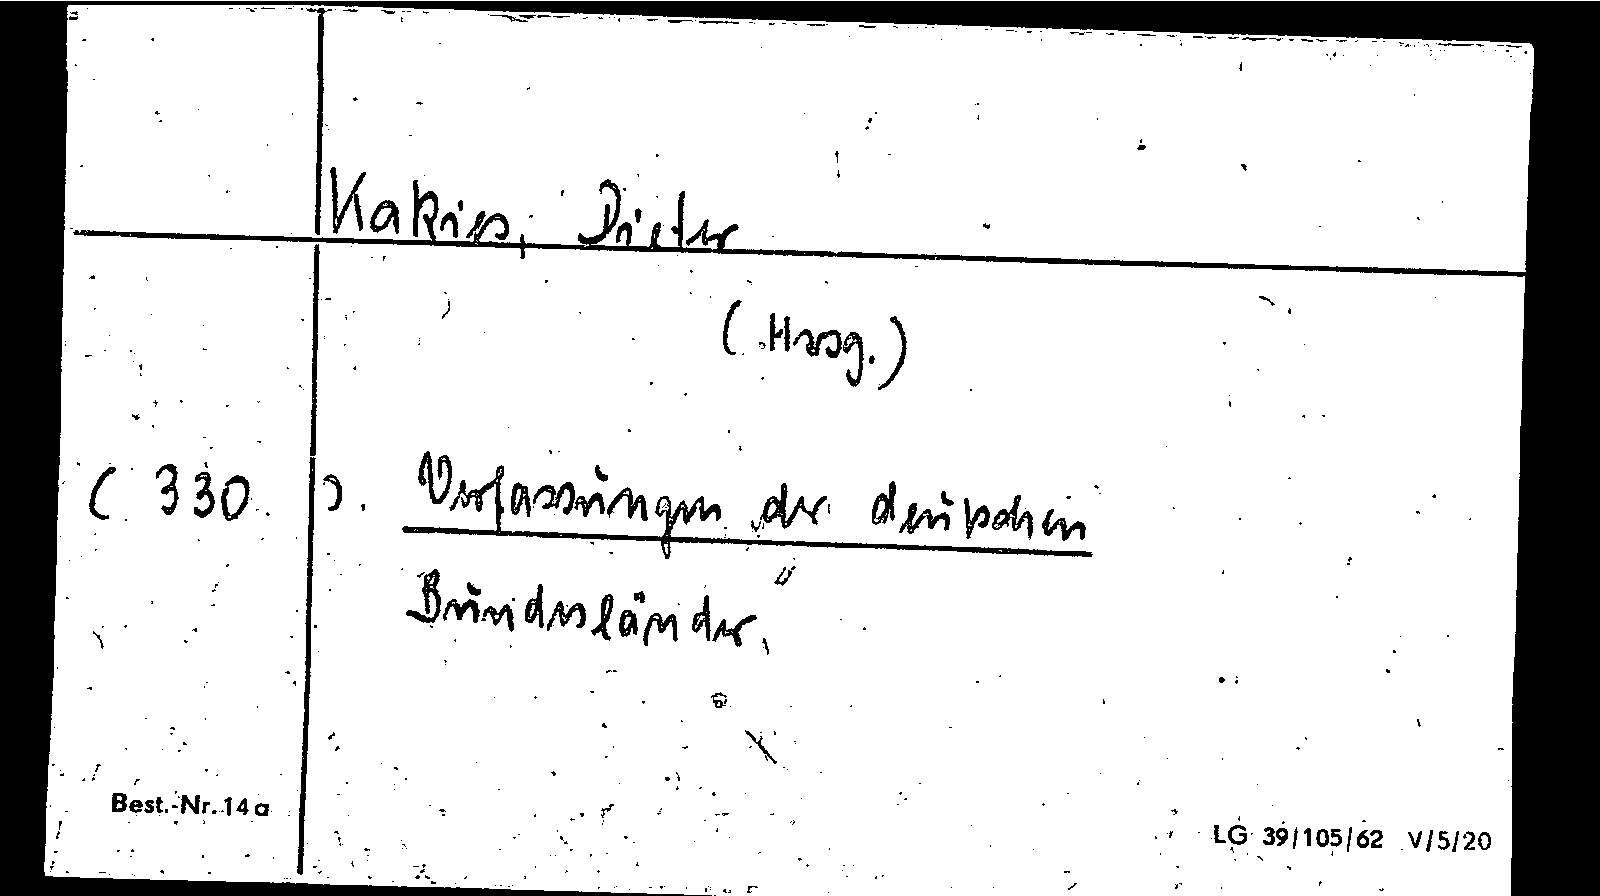 Kakies, Dieter
(Hrsg.)
(330). Verfassungen der deutschen
Bundesländer.
Best.-Nr. 14a
LG 39/105/62 V/5/20